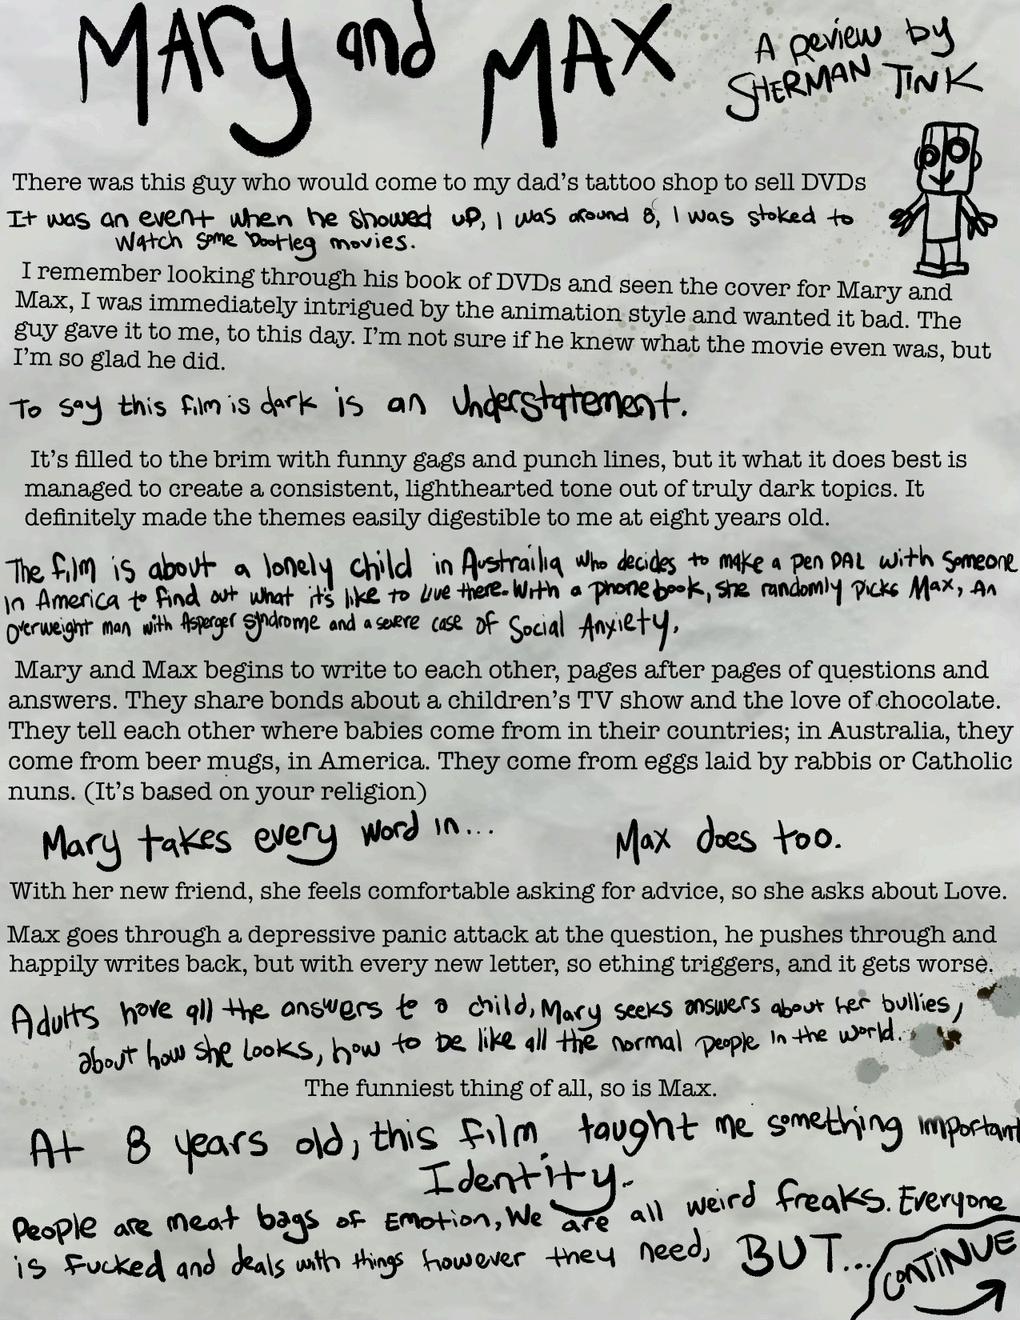 Mary and MAX
A review by
SHERMAN TINK
There was this guy who would come to my dad's tattoo shop to sell DVDs
It was an event when he showed up, I was around 8, I was stoked to
Watch some Bootleg movies.
I remember looking through his book of DVDs and seen the cover for Mary and
Max, I was immediately intrigued by the animation style and wanted it bad. The
guy gave it to me, to this day. I'm not sure if he knew what the movie even was, but
I'm so glad he did.
To say this film is dark is an Understatement.
It's filled to the brim with funny gags and punch lines, but it what it does best is
managed to create a consistent, lighthearted tone out of truly dark topics. It
definitely made the themes easily digestible to me at eight years old.
The film is about a lonely child in Austrailia who decides to make a pen PAL with someone
in America to find out what it's like to live there. With a phone book, she randomly picks Max, An
Overweight man with Asperger Syndrome and a severe case of Social Anxiety.
Mary and Max begins to write to each other, pages after pages of questions and
answers. They share bonds about a children's TV show and the love of chocolate.
They tell each other where babies come from in their countries; in Australia, they
come from beer mugs, in America. They come from eggs laid by rabbis or Catholic
nuns. (It's based on your religion)
Mary takes every word in... Max does too.
With her new friend, she feels comfortable asking for advice, so she asks about Love.
Max goes through a depressive panic attack at the question, he pushes through and
happily writes back, but with every new letter, so ething triggers, and it gets worse.
Adults have all the answers to a child, Mary seeks answers about her bullies,
about how she looks, how to be like all the normal people in the world.
The funniest thing of all, so is Max.
At 8 years old, this film taught me something important
Identity.
People are meat bags of Emotion, We are all weird freaks. Everyone
is Fucked and deals with things however they need, BUT...
CONTINUE